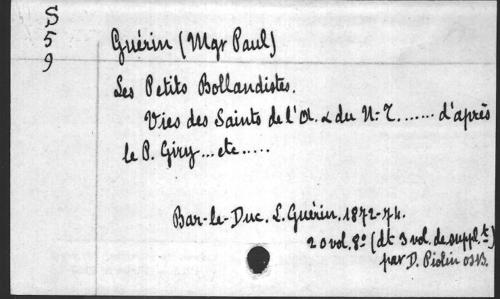 S
5
9
Guérin (Mgr Paul)
Les Petits Bollandistes.
Vies des Saints de l'A. & du N-T. ...... d'après
le P. Giry ... etc .....
Bar-le-Duc. L. Guérin. 1872-74.
20 vol. 8° (dt 3 vol. de suppl.t)
par D. Piolin OSB.